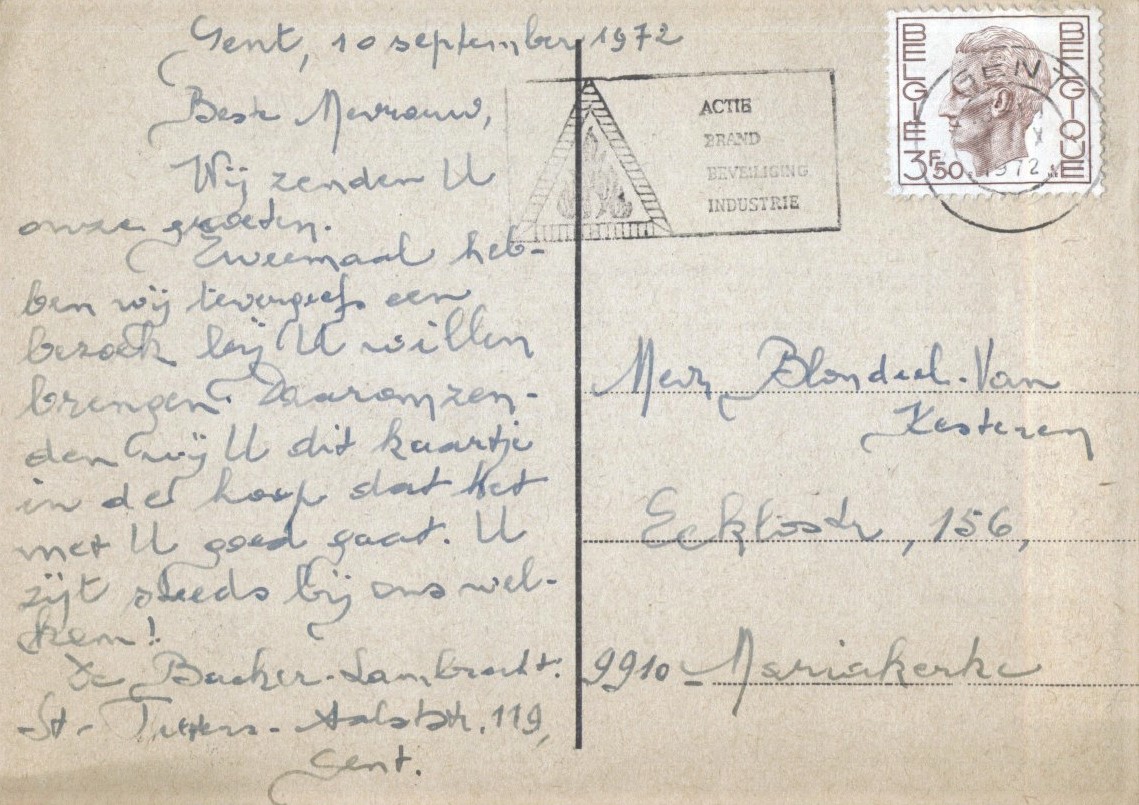 Gent, 10 september 1972
Beste Mevrouw,
Wij zenden U
onze groeten.
Tweemaal heb-
ben wij tevergeefs een
bezoek bij U willen
brengen. Daarom zen-
den wij U dit kaartje
in de hoop dat het
met U goed gaat. U
zijt steeds bij ons wel-
kom!
De Backer-Lambrecht.
St-Pieters-Aalststr. 119,
Gent.
ACTIE
BRAND
BEVEILIGING
INDUSTRIE
BELGIE BELGIQUE
3F50
GENT
1972
Mevr Blondeel-Van
Kesteren
Eeklostr, 156,
9910 - Mariakerke